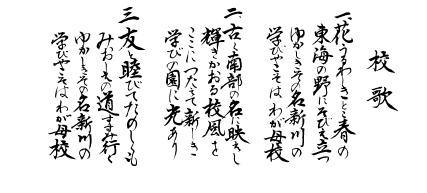 校歌
一、花うるわしきとこ春の
東海の野にそびえ立つ
ゆかしきその名新川の
学びやこそはわが母校
二、古く南部の名に映えし
輝きかおる校風を
ここにつたえて新しき
学びの園に光あり
三、友と睦びてたのしくも
みおしえの道すすみ行く
ゆかしきその名新川の
学びやこそはわが母校